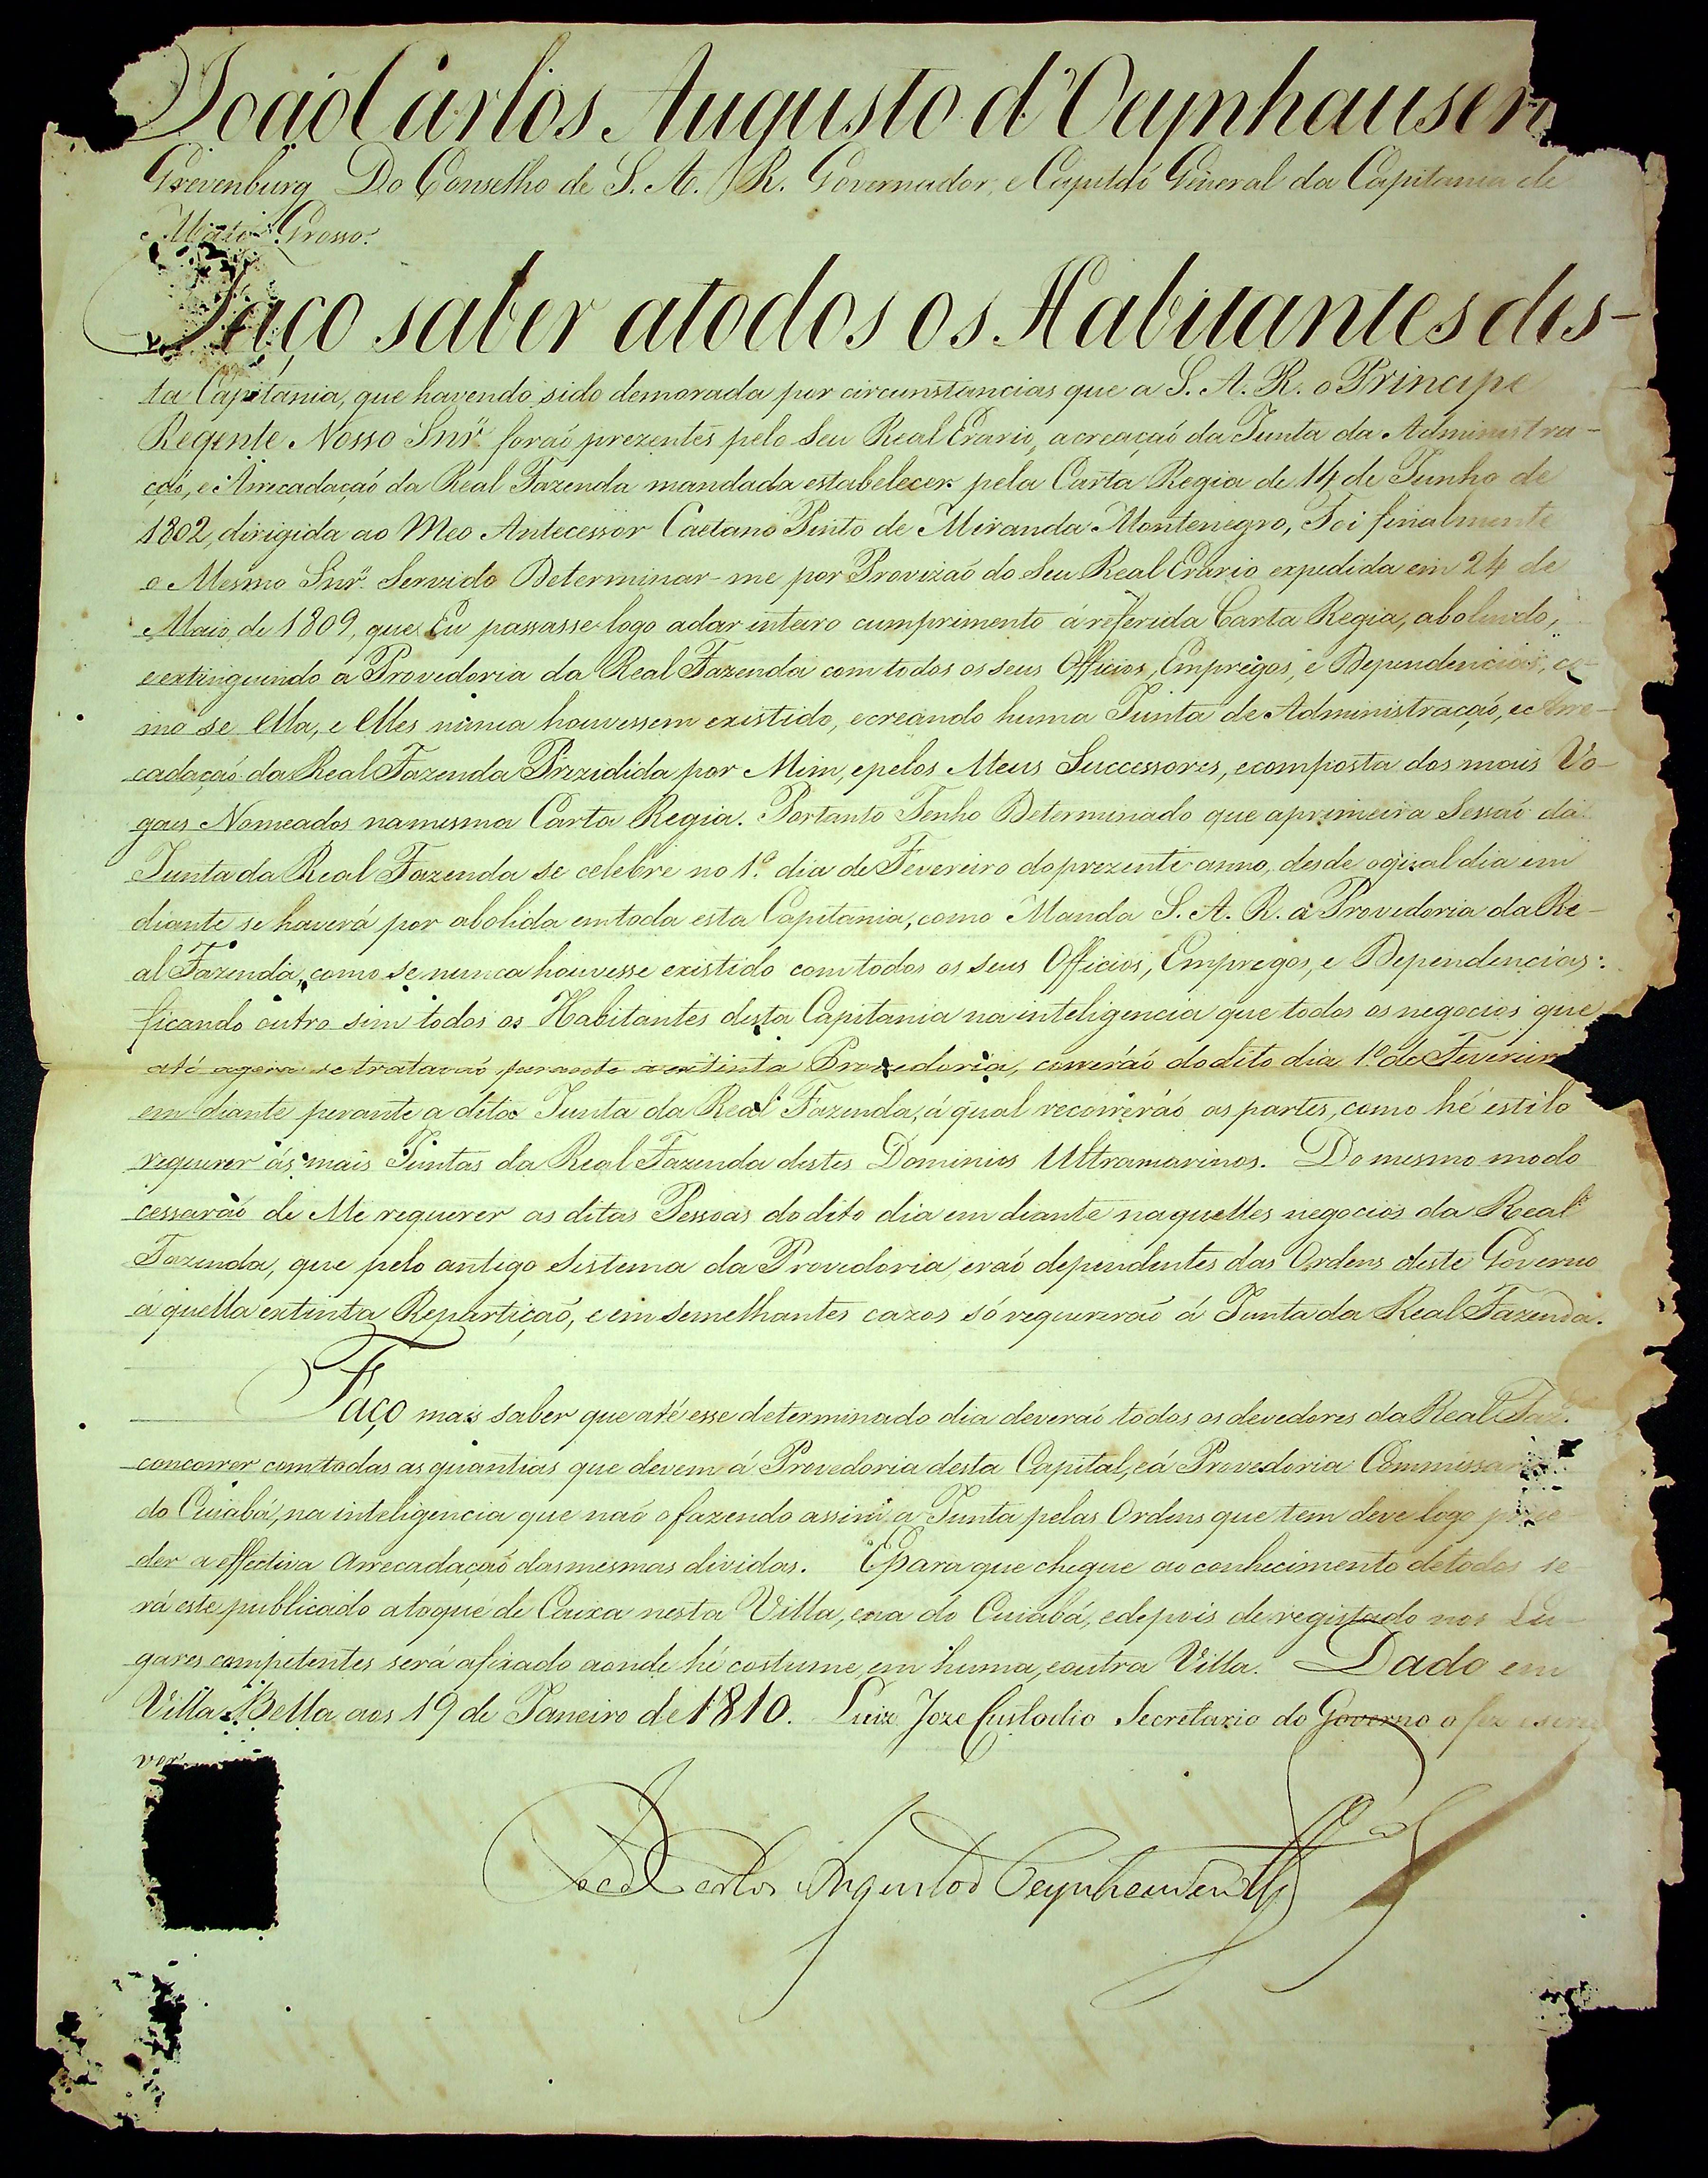 João Carlos Augusto d'Oeynhausen
Grevenburg Do Conselho de S. A. R. Governador, e Capitaó General da Capitania de
Mato Grosso.
Faço saber atodos os Habitantes des-
ta Capitania, que havendo sido demorada por circunstancias que a S. A. R. o Principe
Regente Nosso Snr̃ foraó prezentes pelo Seu Real Erario, acreaçaó da Junta da Administra-
çaó, e Arrecadaçaó da Real Fazenda mandada estabelecer pela Carta Regia de 14 de Junho de
1802, dirigida ao Meo Antecessor Caetano Pinto de Miranda Montenegro, Foi finalmente
o Mesmo Snr̃ Servido Determinar-me por Provizaó do Seu Real Erario expedida em 24 de
Maio de 1809, que Eu passasse logo adar inteiro cumprimento á referida Carta Regia, abolindo,
eextinguindo a Provedoria da Real Fazenda comtodos os seus Officios, Empregos, e Dependencias, co-
mo se Ella, e Elles nunca houvessem existido, ecreando huma Junta de Administraçaó, eArre-
cadaçaó da Real Fazenda Prezidida por Mim, epelos Meus Successores, ecomposta dos mais Vo-
gaes Nomeados namesma Carta Regia. Portanto Tenho Determinado que aprimeira Sessaó da
Junta da Real Fazenda se celebre no 1.º dia de Fevereiro doprezente anno, desde oqual dia em
diante se haverá por abolida emtoda esta Capitania, como Manda S. A. R. a Provedoria da Re-
al Fazenda, como se nunca houvesse existido comtodos os seus Officios, Empregos, e Dependencias:
ficando outro sim todos os Habitantes desta Capitania na inteligencia que todos os negocios que
até agora se trataraó perante a extinta Provedoria, correráó dodito dia 1.º de Fevereiro
em diante perante a dita Junta da Real Fazenda, á qual recorreráó as partes, como hé estilo
requerer ás mais Juntas da Real Fazenda destes Dominios Ultramarinos. Do mesmo modo
cessaráó de Me requerer as ditas Pessoas dodito dia em diante naquelles negocios da Real
Fazenda, que pelo antigo Sistema da Provedoria eraó dependentes das Ordens deste Governo
áquella extinta Repartiçaõ, e em Semelhantes cazos só requereraõ á Junta da Real Fazenda.
Faço mais saber que até esse determinado dia deveraó todos os devedores da Real Faz.
concorrer comtodas as quantias que devem á Provedoria desta Capital, eá Provedoria Commissaria
do Cuiabá, na inteligencia que naó ofazendo assim, a Junta pelas Ordens que tem deve logo proce-
der a effectiva Arrecadaçaó dasmesmas dividas. Epara que chegue ao conhecimento detodos se-
rá este publicado atoque de Caixa nesta Villa, ena do Cuiabá, edepois de registado nos Lu-
gares competentes será afixado aonde hé costume em huma, eoutra Villa. Dado em
Villa Bella aos 19 de Janeiro de 1810. Luiz Joze Custodio Secretario do Governo o fez escre
ver
João Carlos Augusto d'Oeynhausen